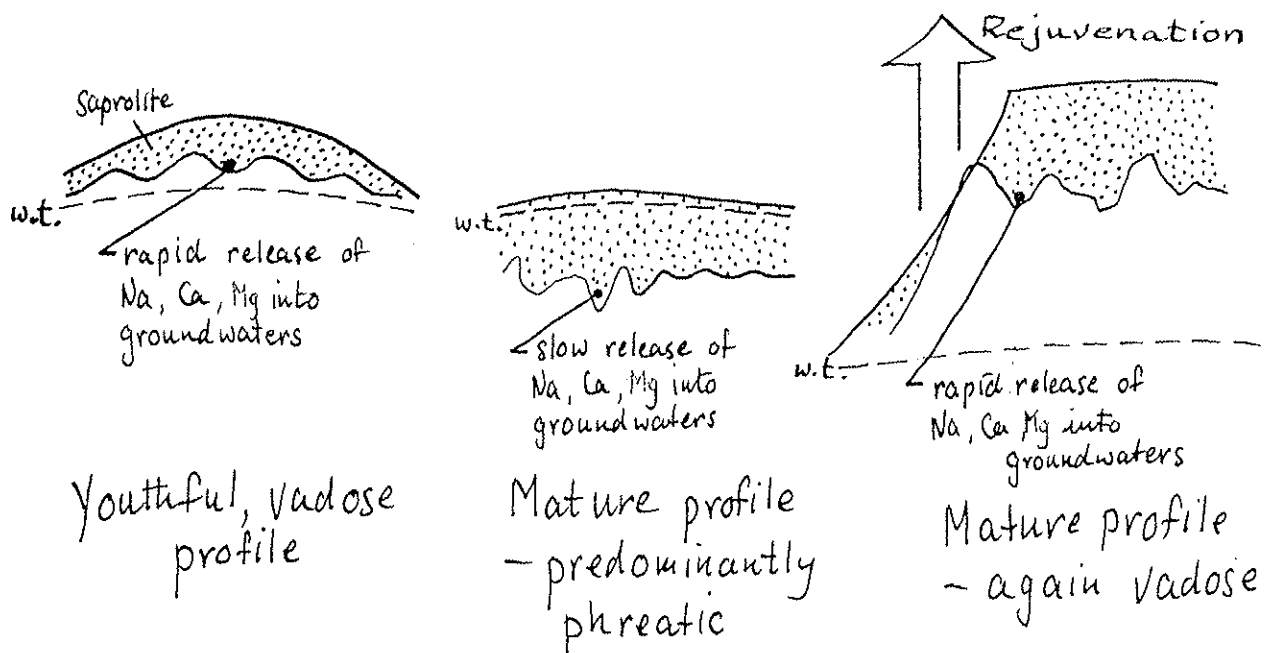 Saprolite
w.t.
rapid release of
Na, Ca, Mg into
groundwaters
Youthful, vadose
profile
w.t.
slow release of
Na, Ca, Mg into
groundwaters
Mature profile
- predominantly
phreatic
Rejuvenation
w.t.
rapid release of
Na, Ca Mg into
groundwaters
Mature profile
- again vadose